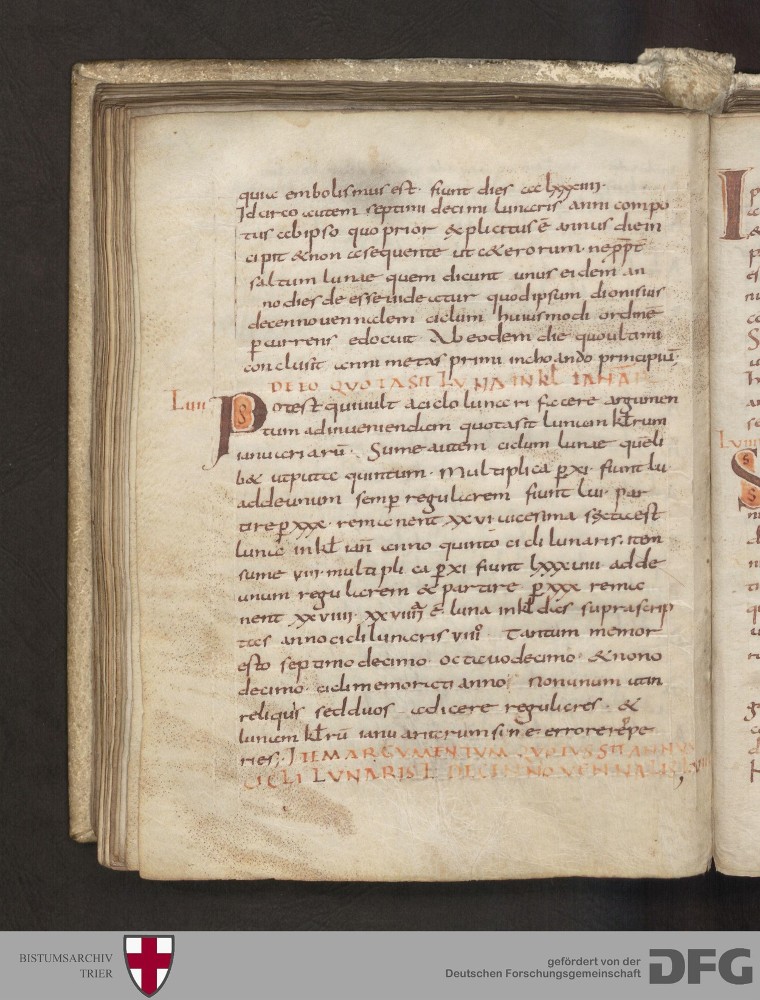 quia embolismus est· fiunt dies ccclxxxiiii·
Idcirco autem septimi decimi lunaris anni compo
tus ab ipso quo prior explicitus ē annus die in
cipit & non a sequente ut c&erorum· nē ppt
saltum lunae quem dicunt unus eidem an
no dies deesse uidetur quod ipsum dionisius
decennouennalem ciclum huiusmodi ordinē
p̄currens edocuit Ab eodem die quo ultimi
conclusit anni metas primi inchoando principiū·
DE EO QUOTA SIT LUNA IN KL IANAR
Liiii
Potest qui uult a ciclo lunari facere argumen
tum ad inueniendam quota sit lunam kl̄rum
ianuariarū· Sume autem ciclum lunae quē li
b& utputa quintum· Multiplica p̄ xi· fiunt lu·
adde unum semp̄ regularem fiunt lui· par
tire p̄ xxx· remanent xxui uicesima sexta est
luna in kl̄ ian̄ anno quinto cicli lunaris, item
sume uiii· multiplica p̄ xi fiunt lxxxuiii adde
unum regularem & partire p̄ xxx rema
nent xxuiiii· xxuiiii ē luna in kl̄ dies suprascrip
tas anno cicli lunaris uiii° Tantum memor
esto septimo decimo· octauo decimo· & nono
decimo· cicli memorati anno; non unum ut in
reliquis sed duos adicere regulares· &
lunam kl̄rū ianuariarum sine errore rep̄pe
ries; ITEM ARGUMENTUM QUOTUS SIT ANNUS
CICLI LUNARIS DECENNOUENNALIS
BISTUMSARCHIV
TRIER
gefördert von der
Deutschen Forschungsgemeinschaft
DFG